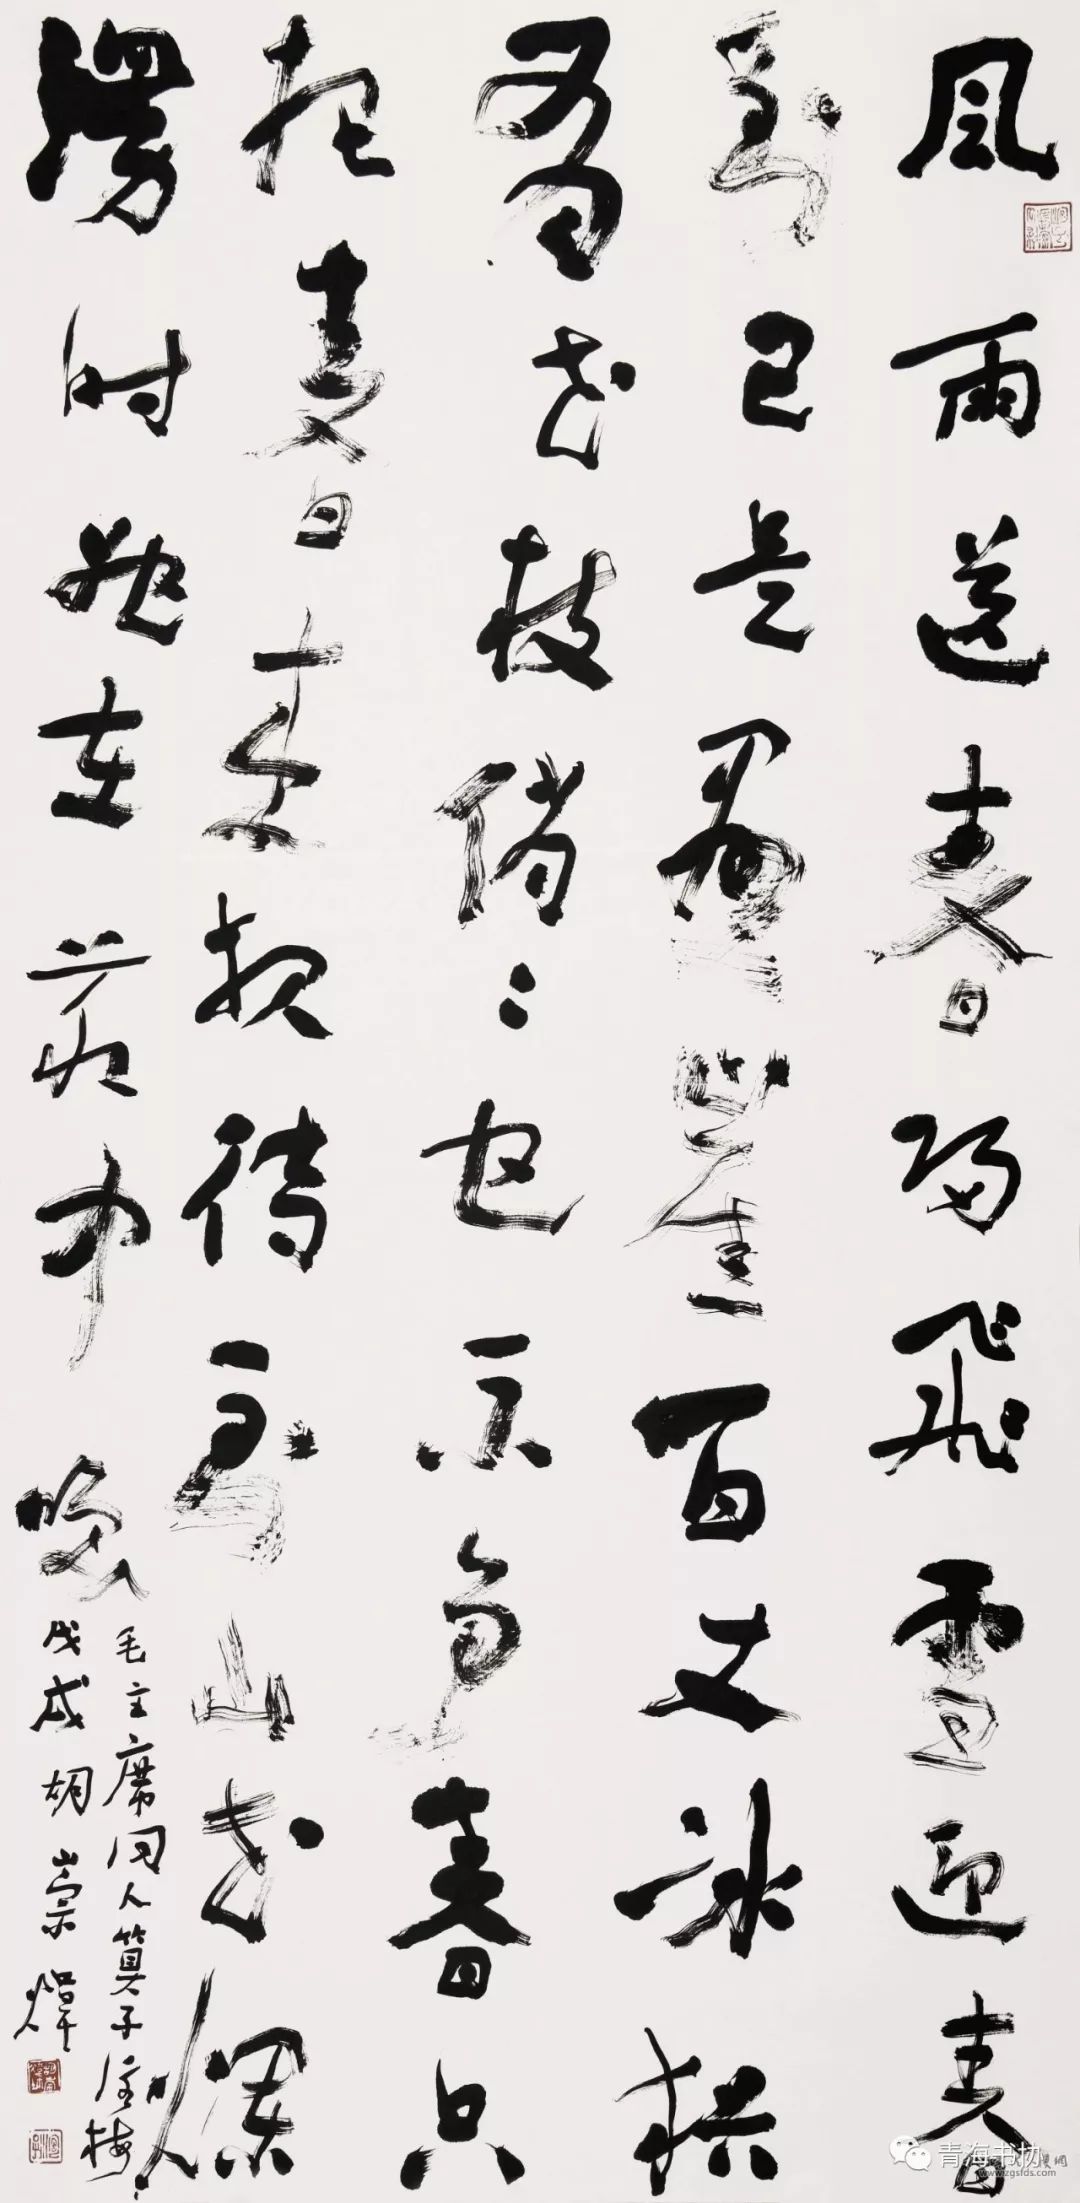 風雨送春歸飛雪迎春
到已是懸崖百丈冰猶
有花枝俏〻也不争春只
把春來報待到山花爛
漫时她在叢中笑
毛主席词卜算子詠梅
戊戌胡崇煒
青海书协
www.zgsfds.com